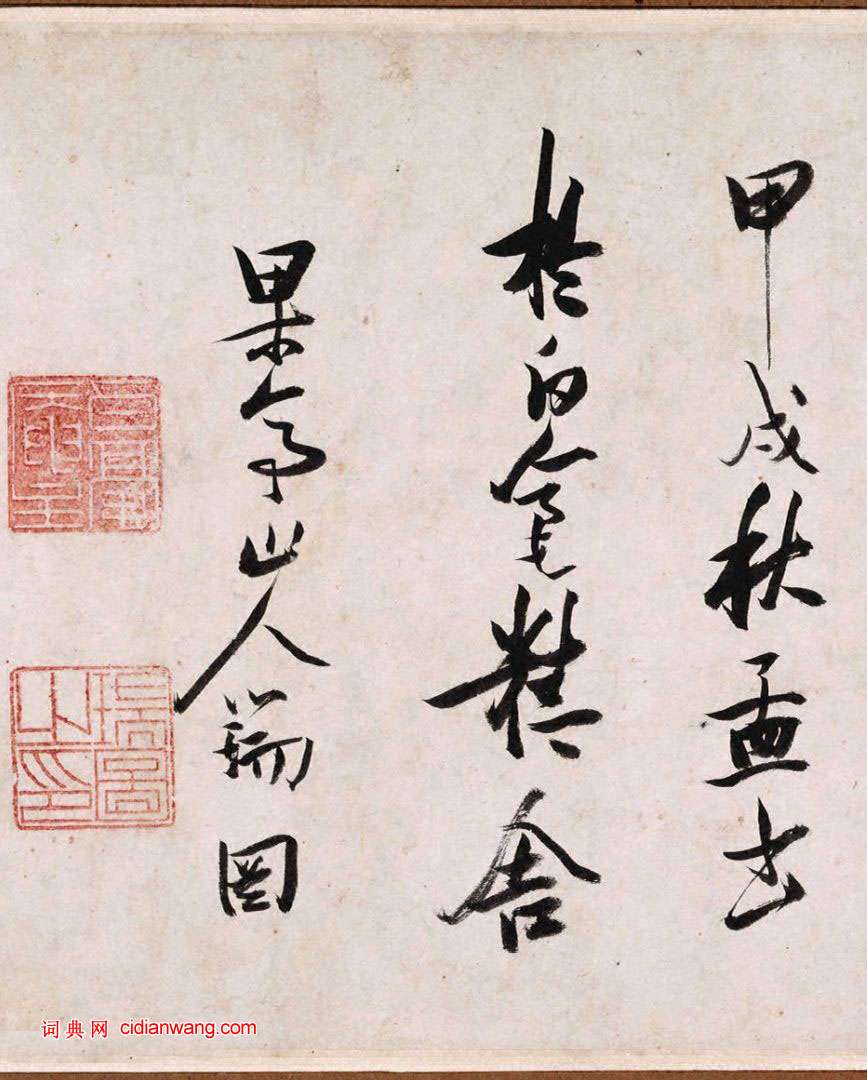 甲戌秋孟书
於白毫精舍
果亭山人瑞图
词典网 cidianwang.com